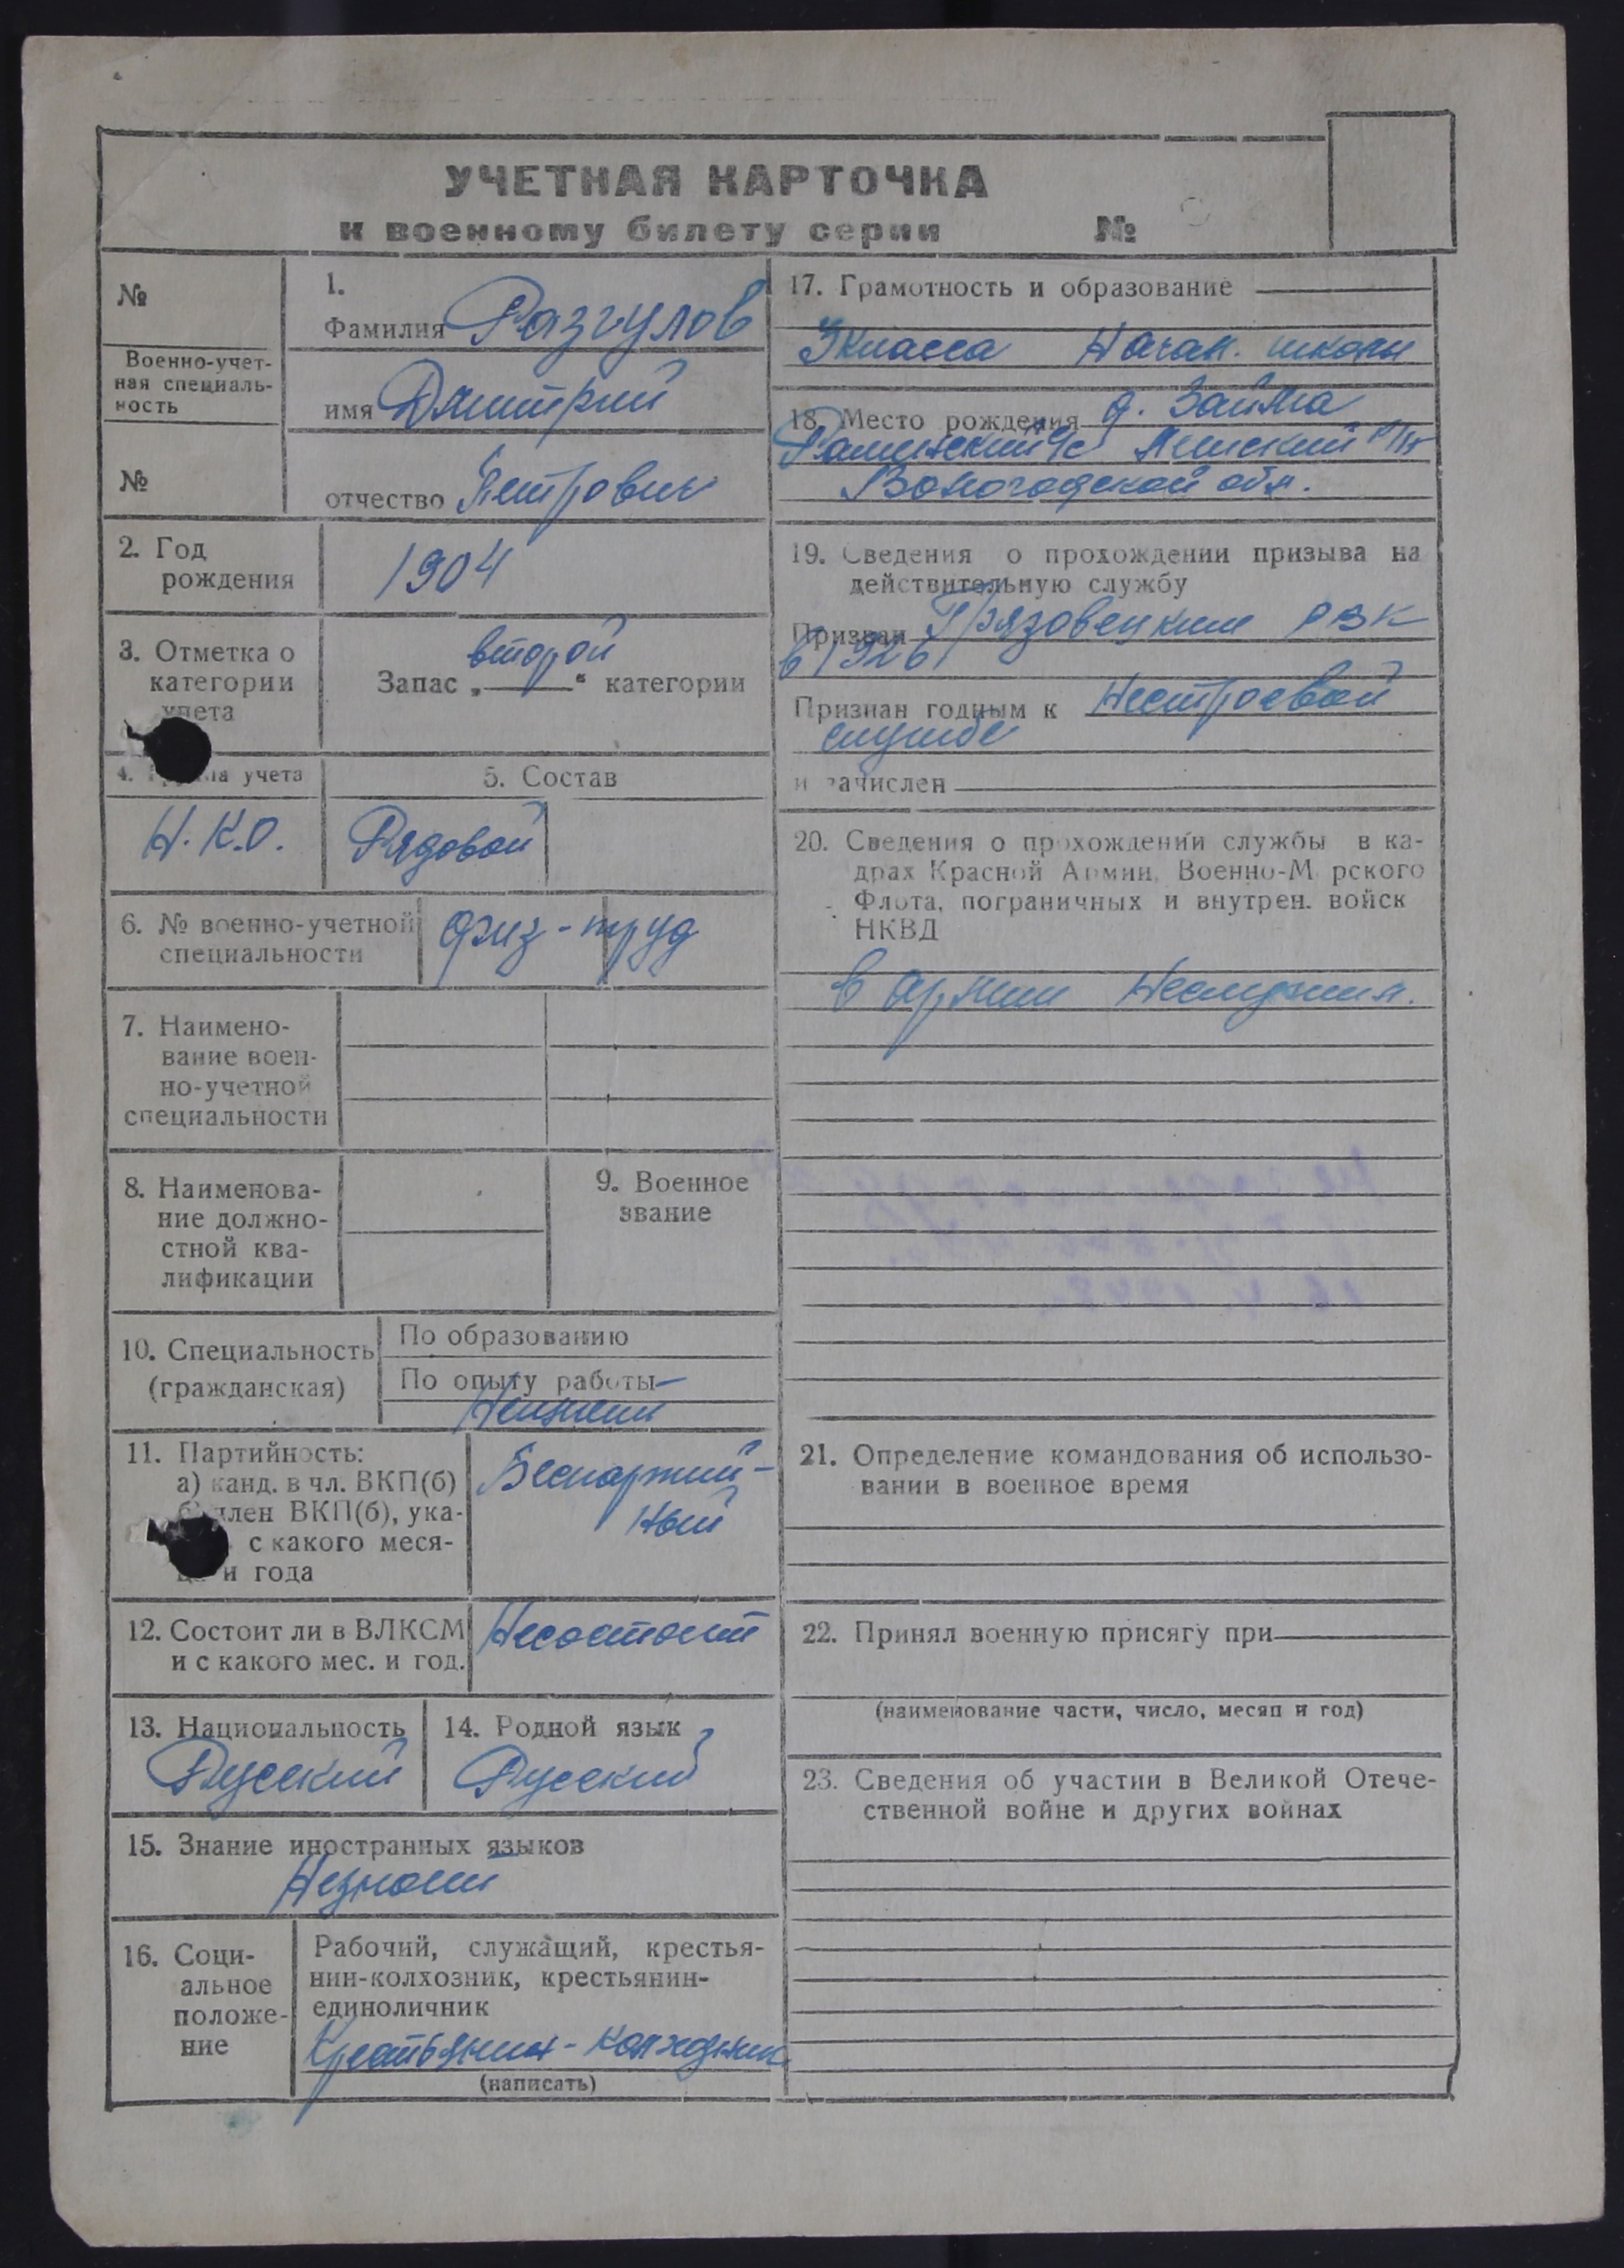 УЧЕТНАЯ КАРТОЧКА
к военному билету серии №
№
Военно-учет-
ная специаль-
ность
№
1.
Фамилия Разгулов
имя Дмитрий
отчество Петрович
2. Год
рождения
1904
3. Отметка о
категории
учета
второй
Запас „ “ категории
4. учета
Н.К.О.
5. Состав
Рядовой
6. № военно-учетной
специальности
физ-труд
7. Наимено-
вание воен-
но-учетной
специальности
8. Наименова-
ние должно-
стной ква-
лификации
9. Военное
звание
10. Специальность
(гражданская)
По образованию
По опыту работы
11. Партийность:
а) канд. в чл. ВКП(б)
член ВКП(б), ука-
с какого меся-
ца и года
Беспартий-
ный
12. Состоит ли в ВЛКСМ
и с какого мес. и год.
Несостоит
13. Национальность
Русский
14. Родной язык
Русский
15. Знание иностранных языков
Незнает
16. Соци-
альное
положе-
ние
Рабочий, служащий, крестья-
нин-колхозник, крестьянин-
единоличник
Крестьянин-колхозник
(написать)
17. Грамотность и образование
3 класса Начал. школы
18. Место рождения д. Займа
Раменский с/с Лежский р/н
Вологодской обл.
19. Сведения о прохождении призыва на
действительную службу
Призван Грязовецким РВК
в 1926
Признан годным к Нестроевой
службе
и зачислен
20. Сведения о прохождении службы в ка-
драх Красной Армии, Военно-М рского
Флота, пограничных и внутрен. войск
НКВД
в армии Неслужил.
21. Определение командования об использо-
вании в военное время
22. Принял военную присягу при
(наименование части, число, месяц и год)
23. Сведения об участии в Великой Отече-
ственной войне и других войнах